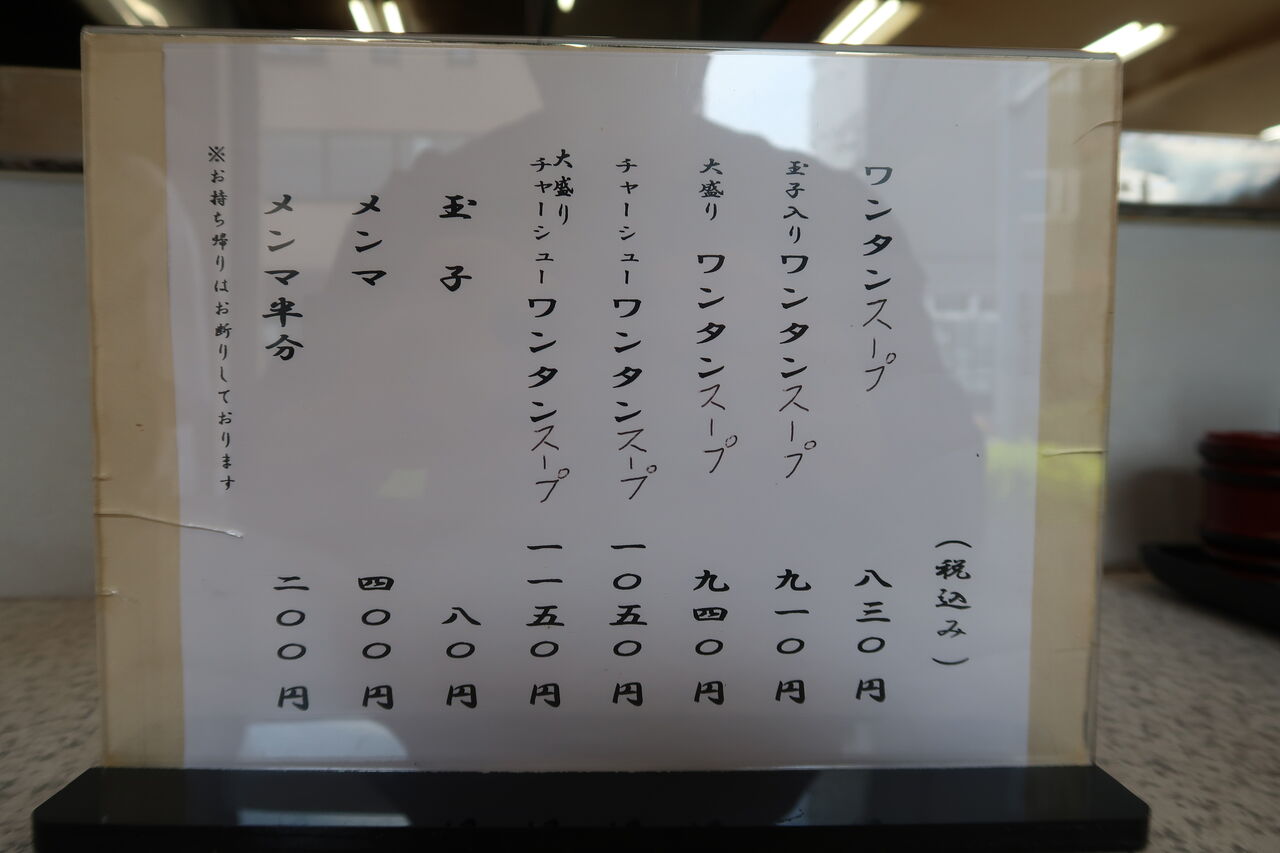 （税込み）
ワンタンスープ 八三〇円
玉子入りワンタンスープ 九一〇円
大盛り ワンタンスープ 九四〇円
チャーシューワンタンスープ 一〇五〇円
大盛り
チャーシューワンタンスープ 一一五〇円
玉子 八〇円
メンマ 四〇〇円
メンマ半分 二〇〇円
※お持ち帰りはお断りしております